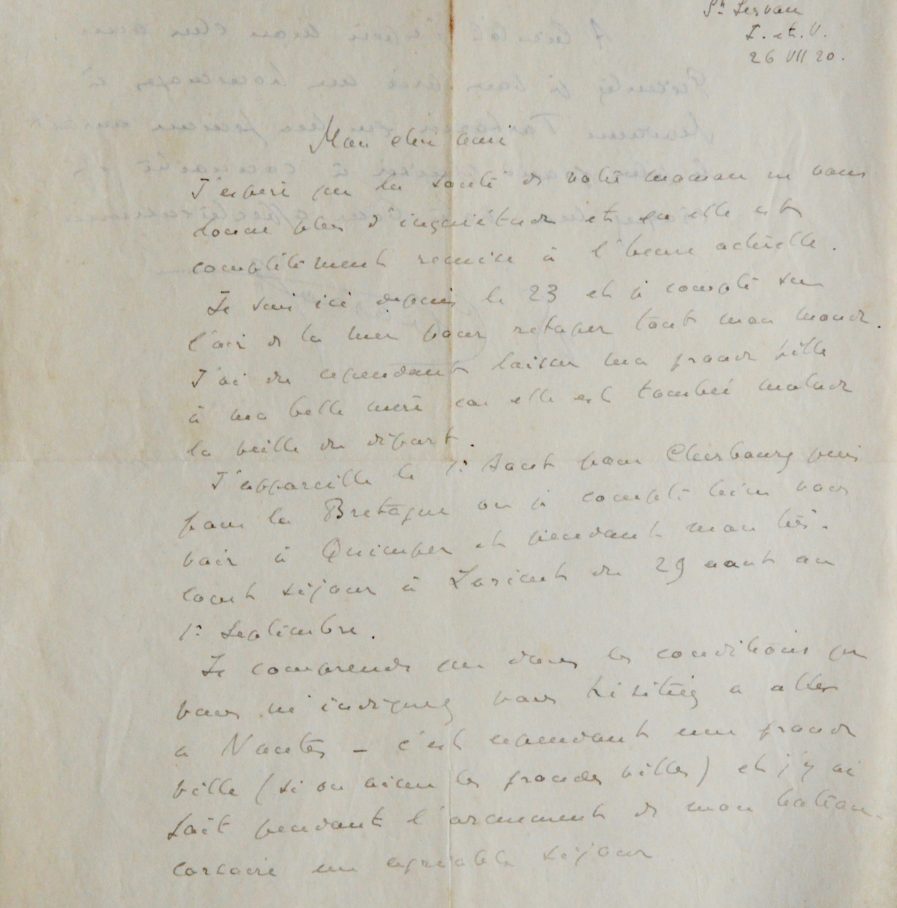 St Servan
I. et. V.
26 VII 20.
Mon cher ami
J'espère que la santé de votre maman ne vous
donne plus d'inquiétude et qu'elle est
complètement remise à l'heure actuelle.
Je suis ici depuis le 23 et je compte sur
l'air de la mer pour retaper tout mon monde.
J'ai du cependant laisser ma grande fille
à ma belle mère car elle est tombée malade
la veille du départ.
J'appareille le 1er Aout pour Cherbourg puis
pour la Bretagne ou je compte bien vous
voir à Quimper et pendant mon très
court séjour à Lorient du 29 aout au
1er Septembre.
Je comprends que dans les conditions que
vous m'indiquez vous hésitiez a aller
a Nantes - c'est cependant une grande
ville (si on aime les grandes villes) et j'y ai
fait pendant l'armement de mon bateau
corsaire un agréable séjour